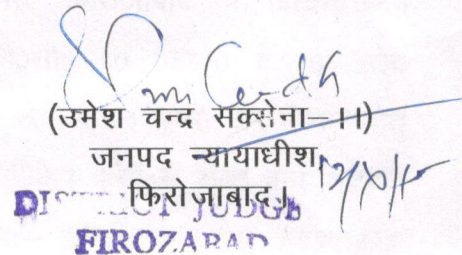 (उमेश चन्द्र सक्सेना-।।)
जनपद न्यायाधीश,
फिरोजाबाद।
DISTRICT JUDGE
FIROZABAD